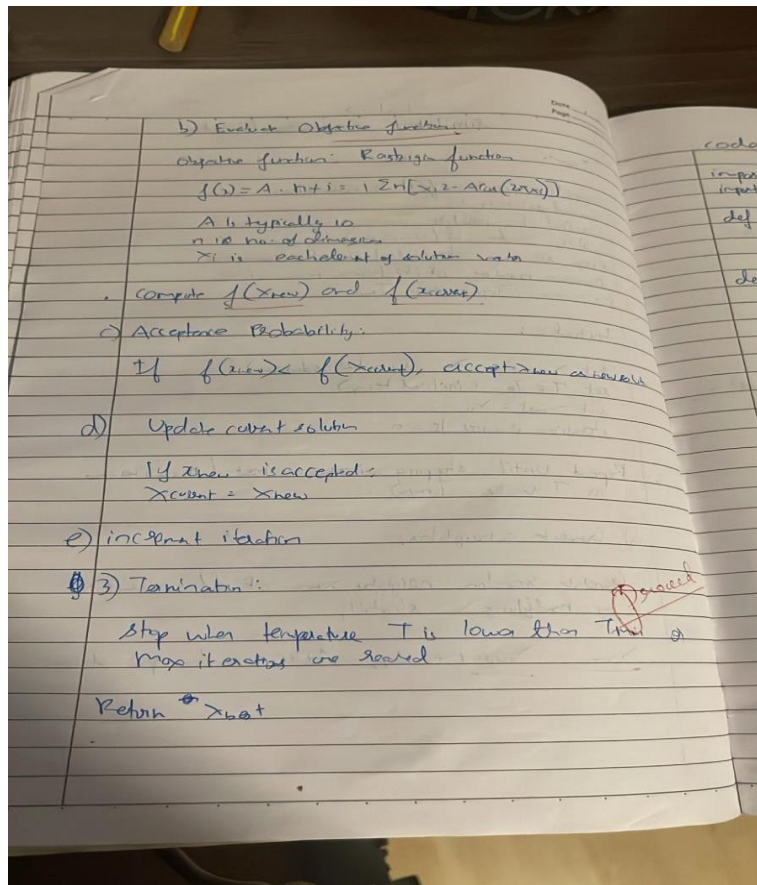 Date
Page
b) Evaluate Objective function
objective function: Rastrigin function
f(x) = A . n + i = 1 Σn[xi2 - Acos(2πxi)]
A is typically 10
n is no. of dimension
xi is each element of solution vector
. compute f(xnew) and f(xcurrent)
c) Acceptance Probability:
If f(xnew) < f(xcurrent), accept xnew as new soln
d) Update current solution
If xnew is accepted:
xcurrent = xnew
e) increment iteration
3) Termination:
Stop when temperature T is lower than Tmin or
max iterations are reached
Return xbest
code
impor
import
def
de